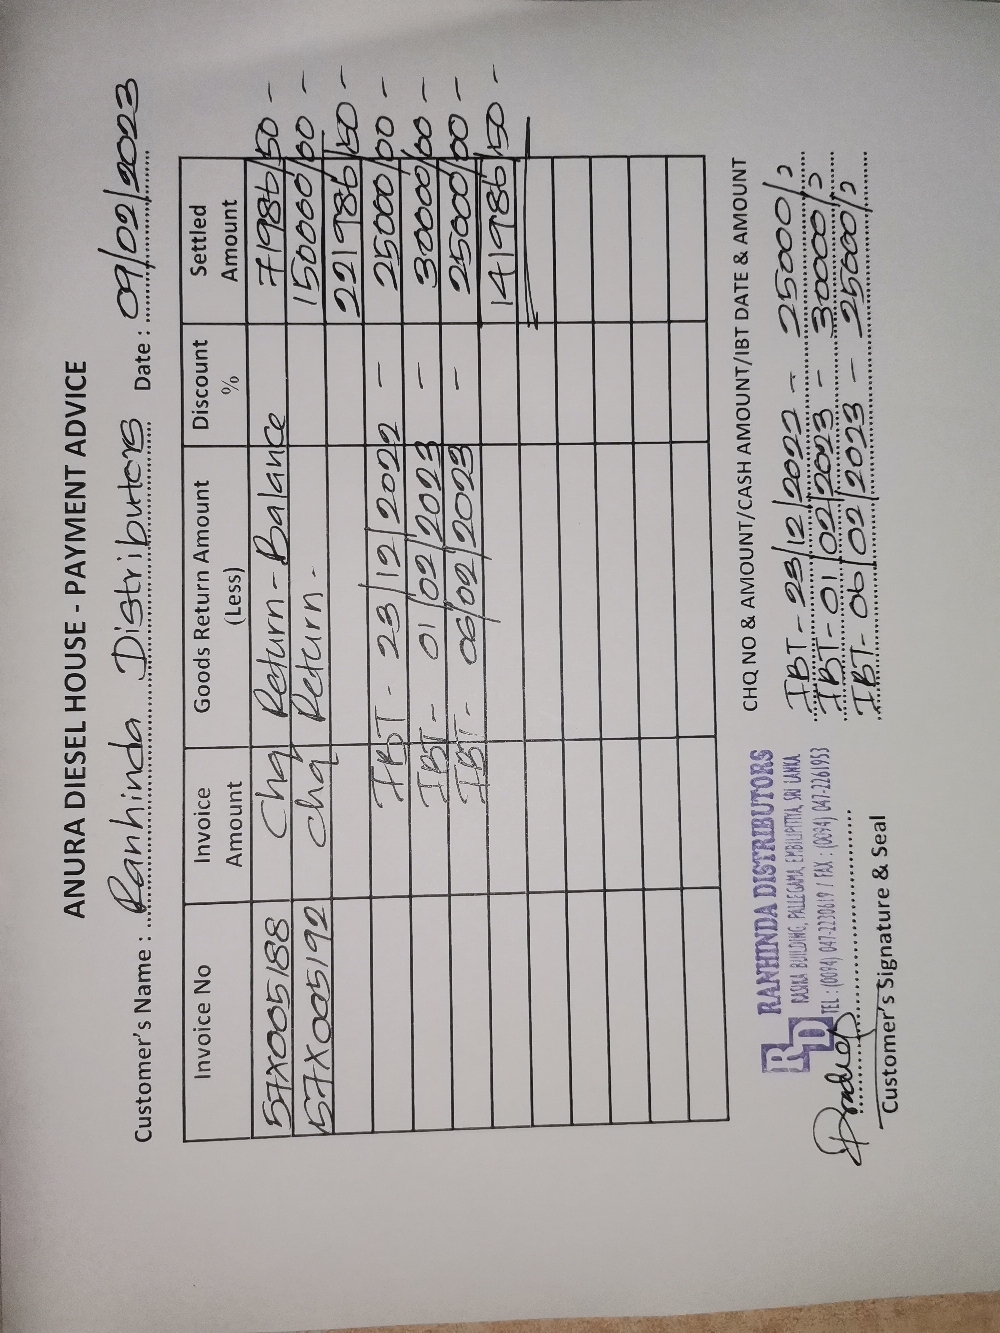 ANURA DIESEL HOUSE - PAYMENT ADVICE
Customer's Name : Ranhinda Distributors Date : 09/02/2023
Invoice No Invoice Amount Goods Return Amount (Less) Discount % Settled Amount
57X005188 Chq Return - Balance 71986/50 -
57X005192 Chq Return - 150000/00 -
221986/50 -
IBT - 23/12/2022 - 25000/00 -
IBT - 01/02/2023 - 30000/00 -
IBT - 06/02/2023 - 25000/00 -
141986/50 -
CHQ NO & AMOUNT/CASH AMOUNT/IBT DATE & AMOUNT
IBT - 23/12/2022 - 25000/
IBT - 01/02/2023 - 30000/
IBT - 06/02/2023 - 25000/
RD RANHINDA DISTRIBUTORS
RASIKA BUILDING, PALLEGAMA, EMBILIPITIYA, SRI LANKA
TEL : (0094) 047-2230617 / FAX : (0094) 047-2261953
Customer's Signature & Seal